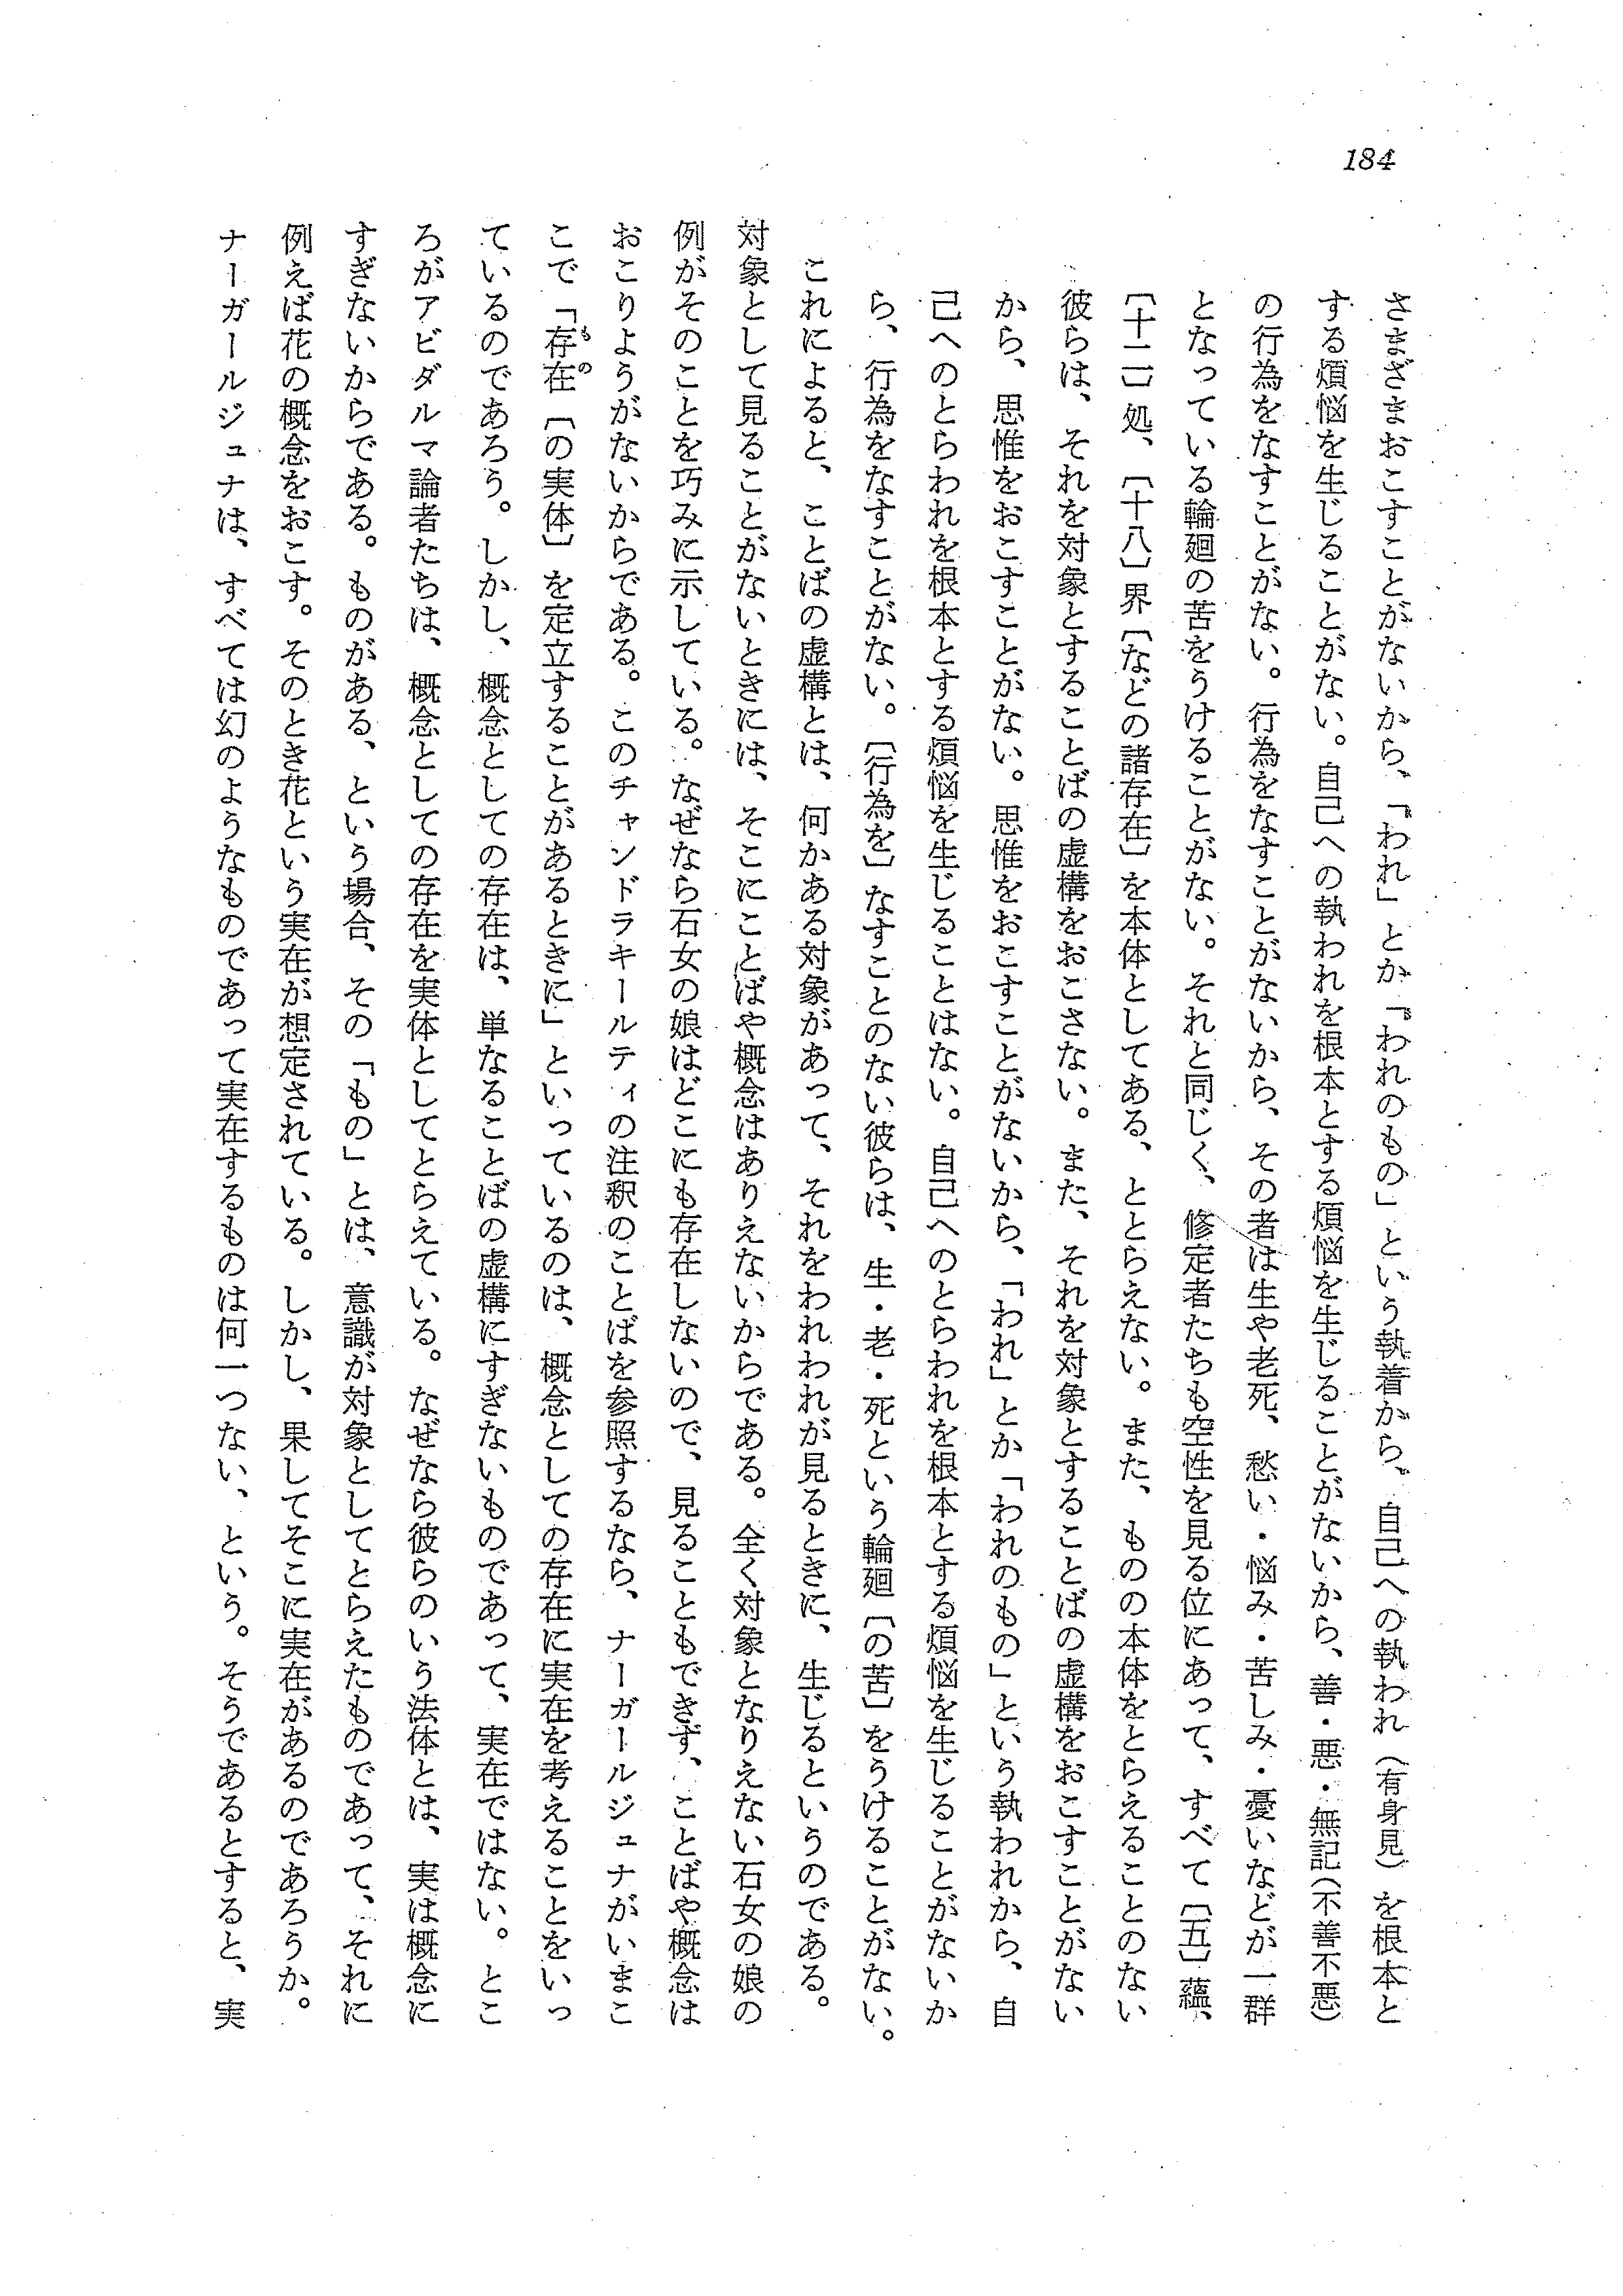 184
さまざまおこすことがないから、「われ」とか「われのもの」という執着から、自己への執われ（有身見）を根本と
する煩悩を生じることがない。自己への執われを根本とする煩悩を生じることがないから、善・悪・無記（不善不悪）
の行為をなすことがない。行為をなすことがないから、その者は生や老死、愁い・悩み・苦しみ・憂いなどが一群
となっている輪廻の苦をうけることがない。それと同じく、修定者たちも空性を見る位にあって、すべて〔五〕蘊、
〔十二〕処、〔十八〕界〔などの諸存在〕を本体としてある、ととらえない。また、ものの本体をとらえることのない
彼らは、それを対象とすることばの虚構をおこさない。また、それを対象とすることばの虚構をおこすことがない
から、思惟をおこすことがない。思惟をおこすことがないから、「われ」とか「われのもの」という執われから、自
己へのとらわれを根本とする煩悩を生じることはない。自己へのとらわれを根本とする煩悩を生じることがないか
ら、行為をなすことがない。〔行為を〕なすことのない彼らは、生・老・死という輪廻〔の苦〕をうけることがない。
これによると、ことばの虚構とは、何かある対象があって、それをわれわれが見るときに、生じるというのである。
対象として見ることがないときには、そこにことばや概念はありえないからである。全く対象となりえない石女の娘の
例がそのことを巧みに示している。なぜなら石女の娘はどこにも存在しないので、見ることもできず、ことばや概念は
おこりようがないからである。このチャンドラキールティの注釈のことばを参照するなら、ナーガールジュナがいまこ
こで「存在〔の実体〕を定立することがあるときに」といっているのは、概念としての存在に実在を考えることをいっ
ているのであろう。しかし、概念としての存在は、単なることばの虚構にすぎないものであって、実在ではない。とこ
ろがアビダルマ論者たちは、概念としての存在を実体としてとらえている。なぜなら彼らのいう法体とは、実は概念に
すぎないからである。ものがある、という場合、その「もの」とは、意識が対象としてとらえたものであって、それに
例えば花の概念をおこす。そのとき花という実在が想定されている。しかし、果してそこに実在があるのであろうか。
ナーガールジュナは、すべては幻のようなものであって実在するものは何一つない、という。そうであるとすると、実